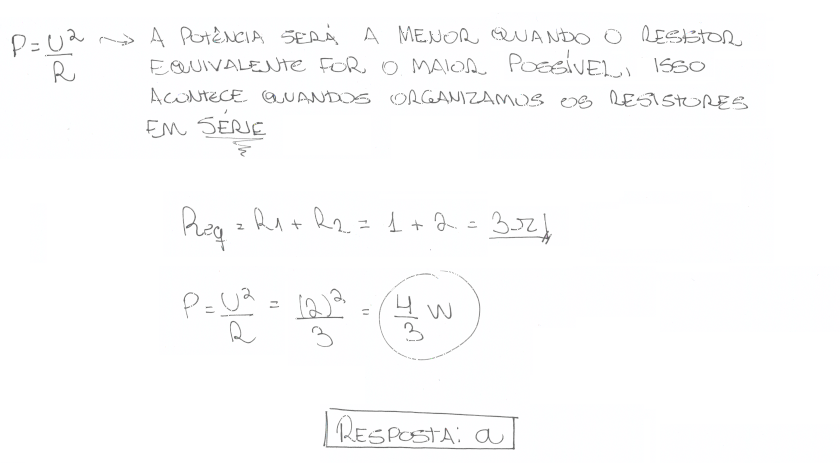 P = U²/R ~> A POTÊNCIA SERÁ A MENOR QUANDO O RESISTOR
EQUIVALENTE FOR O MAIOR POSSÍVEL, ISSO
ACONTECE QUANDOS ORGANIZAMOS OS RESISTORES
EM SÉRIE
Req = R1 + R2 = 1 + 2 = 3Ω
P = U²/R = (2)²/3 = 4/3 W
RESPOSTA: a